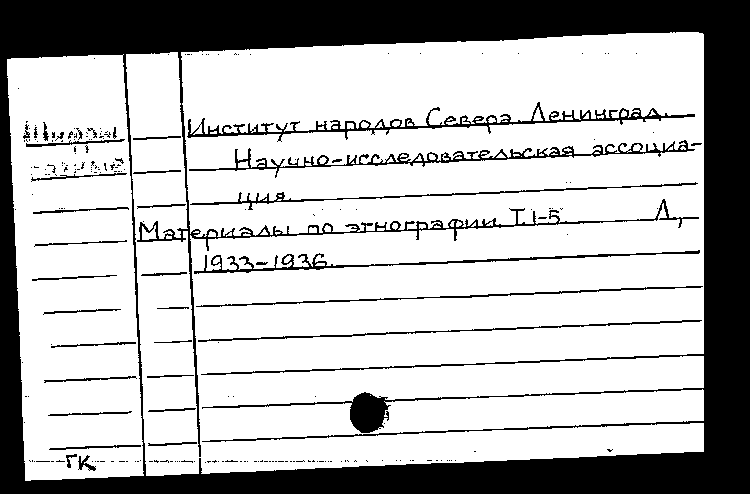 Шифры
разные
Институт народов Севера. Ленинград.
Научно-исследовательская ассоциа-
ция.
Материалы по этнографии. Т.1-5. Л.,
1933-1936.
ГК